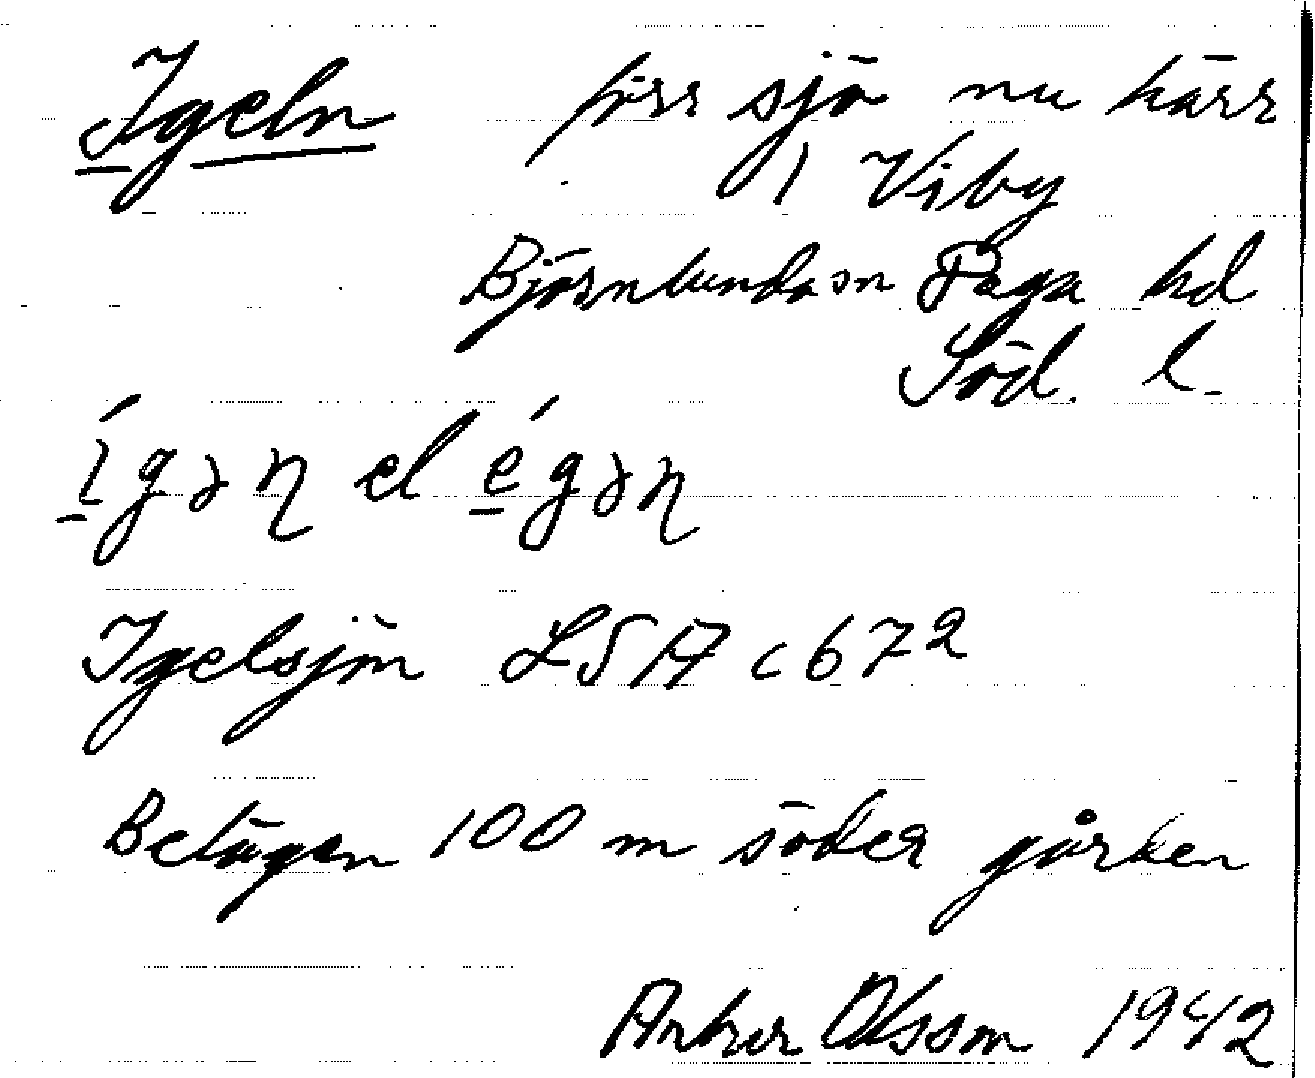 Igeln förr sjö nu kärr
i Viby
Björnlunda sn Daga hd
Söd. l.
í̱gəη el é̱gəη
Igelsjön LSA c 67²
Belägen 100 m söder gården
Arthur Olsson 1942